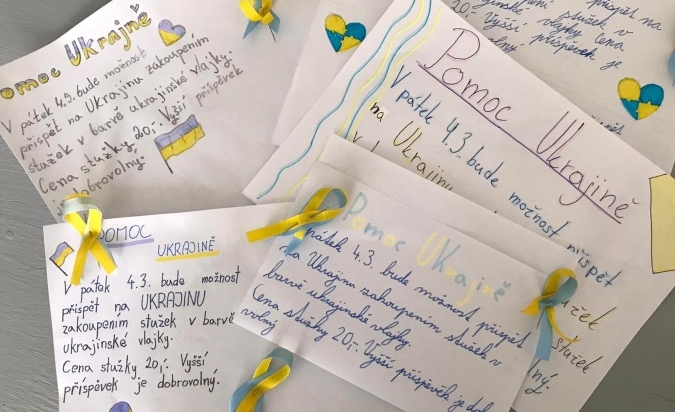 Pomoc Ukrajině
V pátek 4.3. bude možnost
přispět na Ukrajinu zakoupením
stužek v barvě ukrajinské vlajky.
Cena stužky, 20,-. Vyšší příspěvek
je dobrovolný.
přispět na
stužek v
vlajky Cena
20,- Vyšší příspěvek je
Pomoc Ukrajině
V pátek 4.3. bude možnost přispět
na Ukrajinu
stužek
POMOC UKRAJINĚ
V pátek 4.3. bude možnost
přispět na UKRAJINU
zakoupením stužek v barvě
ukrajinské vlajky.
Cena stužky 20,-. Vyšší
příspěvek je dobrovolný.
Pomoc Ukrajině
pátek 4.3. bude možnost přispět
na Ukrajinu zakoupením stužek v
barvě ukrajinské vlajky.
Cena stužky 20,-. Vyšší příspěvek je
volný